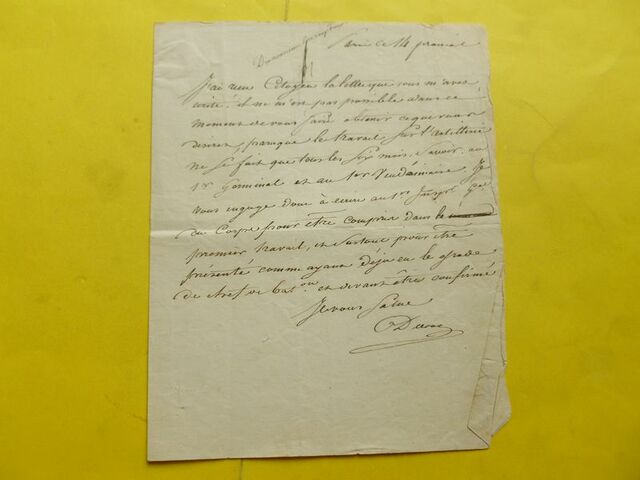 Paris ce 14 prairial
J'ai reçu Citoyen la lettre que vous m'avez
écrite, il ne m'est pas possible dans ce
moment de vous faire obtenir ce que vous
desirez, parceque le travail sur l'artillerie
ne se fait que tous les six mois, savoir, au
1er Germinal et au 1er Vendemiaire. Je
vous engage donc à ecrire au 1er Inspr Gal
du Corps pour être compris dans le
premier travail, et surtout pour être
presenté comme ayant déjà eu le grade
de chef de Baton et devant être confirmé
Je vous salue
Duroc